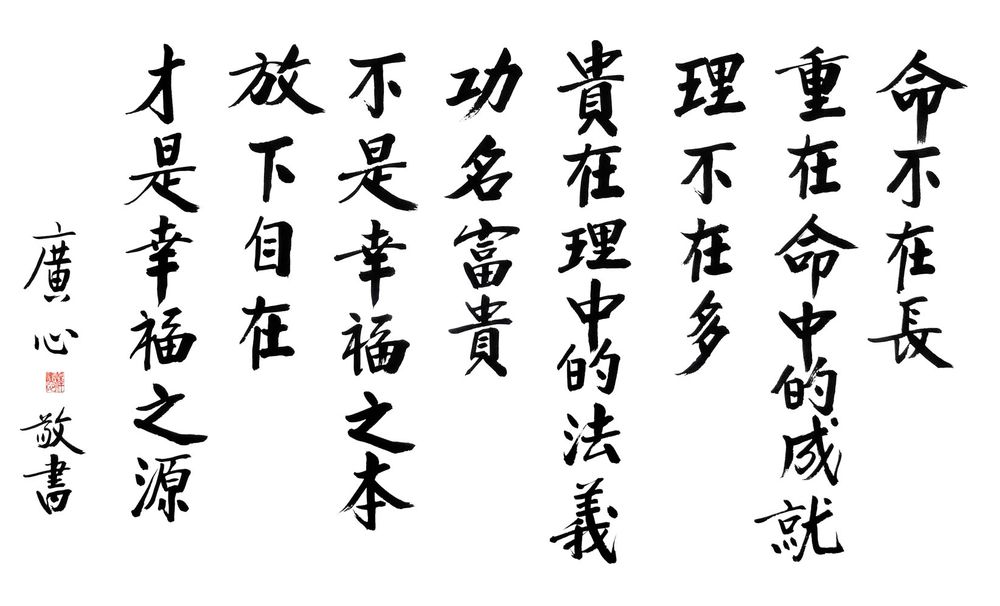 命不在長
重在命中的成就
理不在多
貴在理中的法義
功名富貴
不是幸福之本
放下自在
才是幸福之源
廣心
敬書